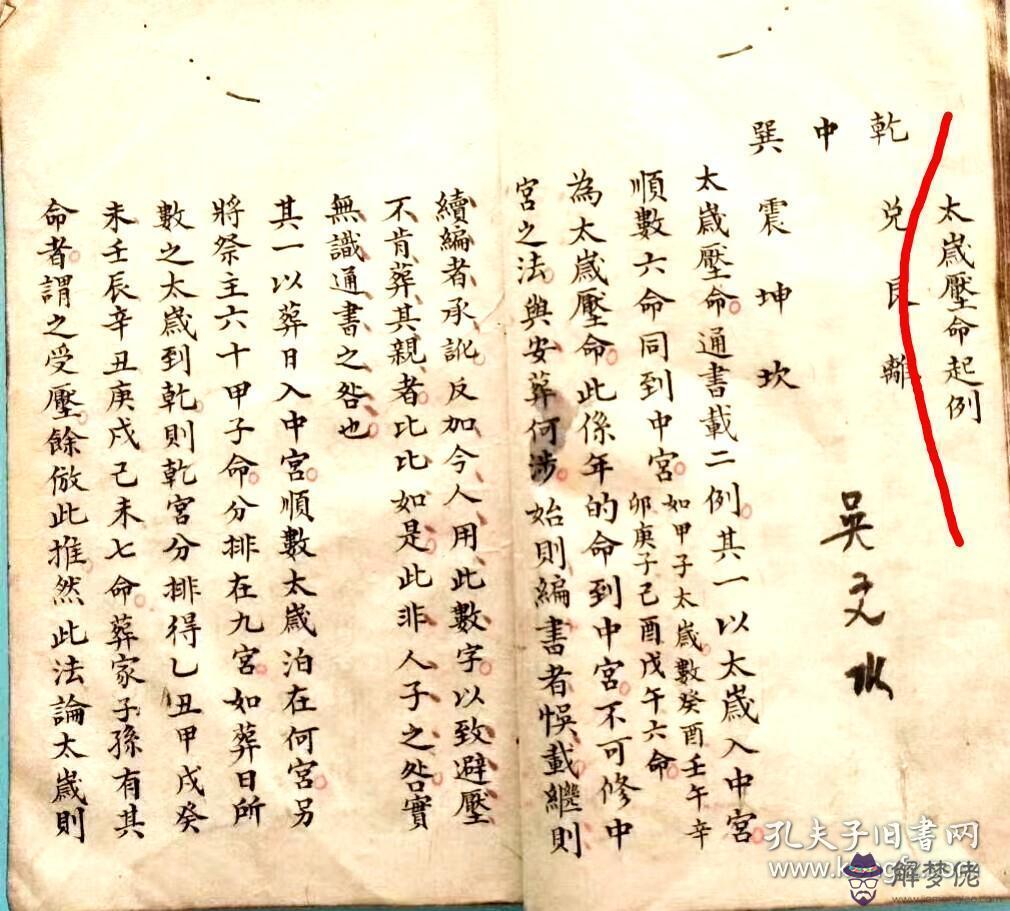 太歲壓命起例
乾　兌艮離
中
巽　震坤坎
吳文水
太歲壓命通書載二例其一以太歲入中宮
順數六命同到中宮如甲子太歲數癸酉壬午辛
卯庚子己酉戊午六命
為太歲壓命此係年的命到中宮不可修中
宮之法與安葬何涉始則編書者悞載繼則
續編者承訛反加今人用此數字以致避壓
不肯葬其親者比比如是此非人子之咎實
無識通書之咎也
其一以葬日入中宮順數太歲泊在何宮另
將祭主六十甲子命分排在九宮如葬日所
數之太歲到乾則乾宮分排得乙丑甲戌癸
未壬辰辛丑庚戌己未七命葬家子孫有其
命者謂之受壓餘倣此推然此法論太歲則
孔夫子旧书网
解梦佬